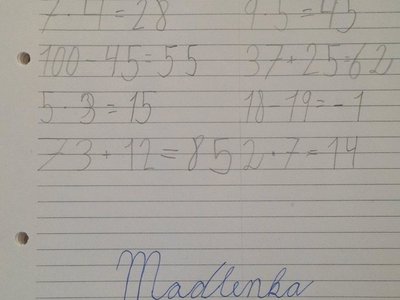 7 · 4 = 28 9 · 5 = 45
100 - 45 = 55 37 + 25 = 62
5 · 3 = 15 18 - 19 = - 1
73 + 12 = 85 2 · 7 = 14
Madlenka